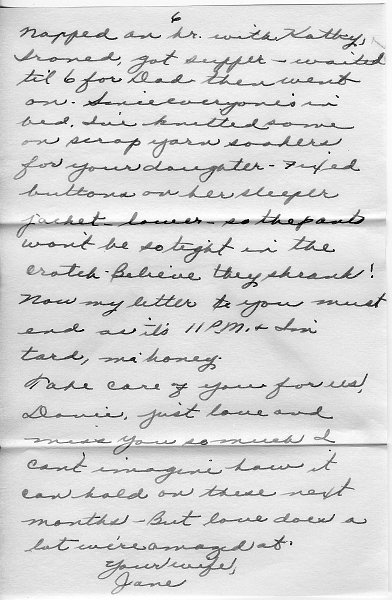 6
napped an hr. with Kathy,
Ironed, got supper - waited
til 6 for Dad then went
on. Since everyone's in
bed, I've knitted some
on scrap yarn soakers
for your daughter - Fixed
buttons on her sleeper
jacket - lower - so the pants
won't be so tight in the
crotch. Believe they shrank!
Now my letter to you must
end as it's 11 P.M. & I'm
tard, ma honey.
Take care of you for us,
Davie, just love and
miss you so much I
can't imagine how it
can hold on these next
months - But love does a
lot we're amazed at.
Your wife,
Jane